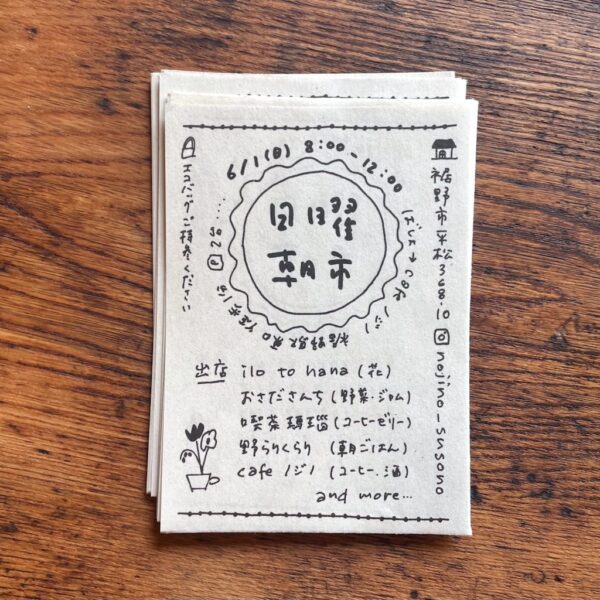 6/1(日) 8:00-12:00
日曜
朝市
ばしょ→cafe ノジノ
裾野駅

P 2台
エコバッグご持参ください
裾野市平松368-10
nojino_susono
出店 ilo to hana (花)
おさださんち (野菜・ジャム)
喫茶 珊瑚 (コーヒーゼリー)
野らりくらり (朝ごはん)
cafe ノジノ (コーヒー・酒)
and more...